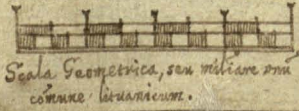 Scala Geometrica, seu miliare vnū
comune lituanicum.